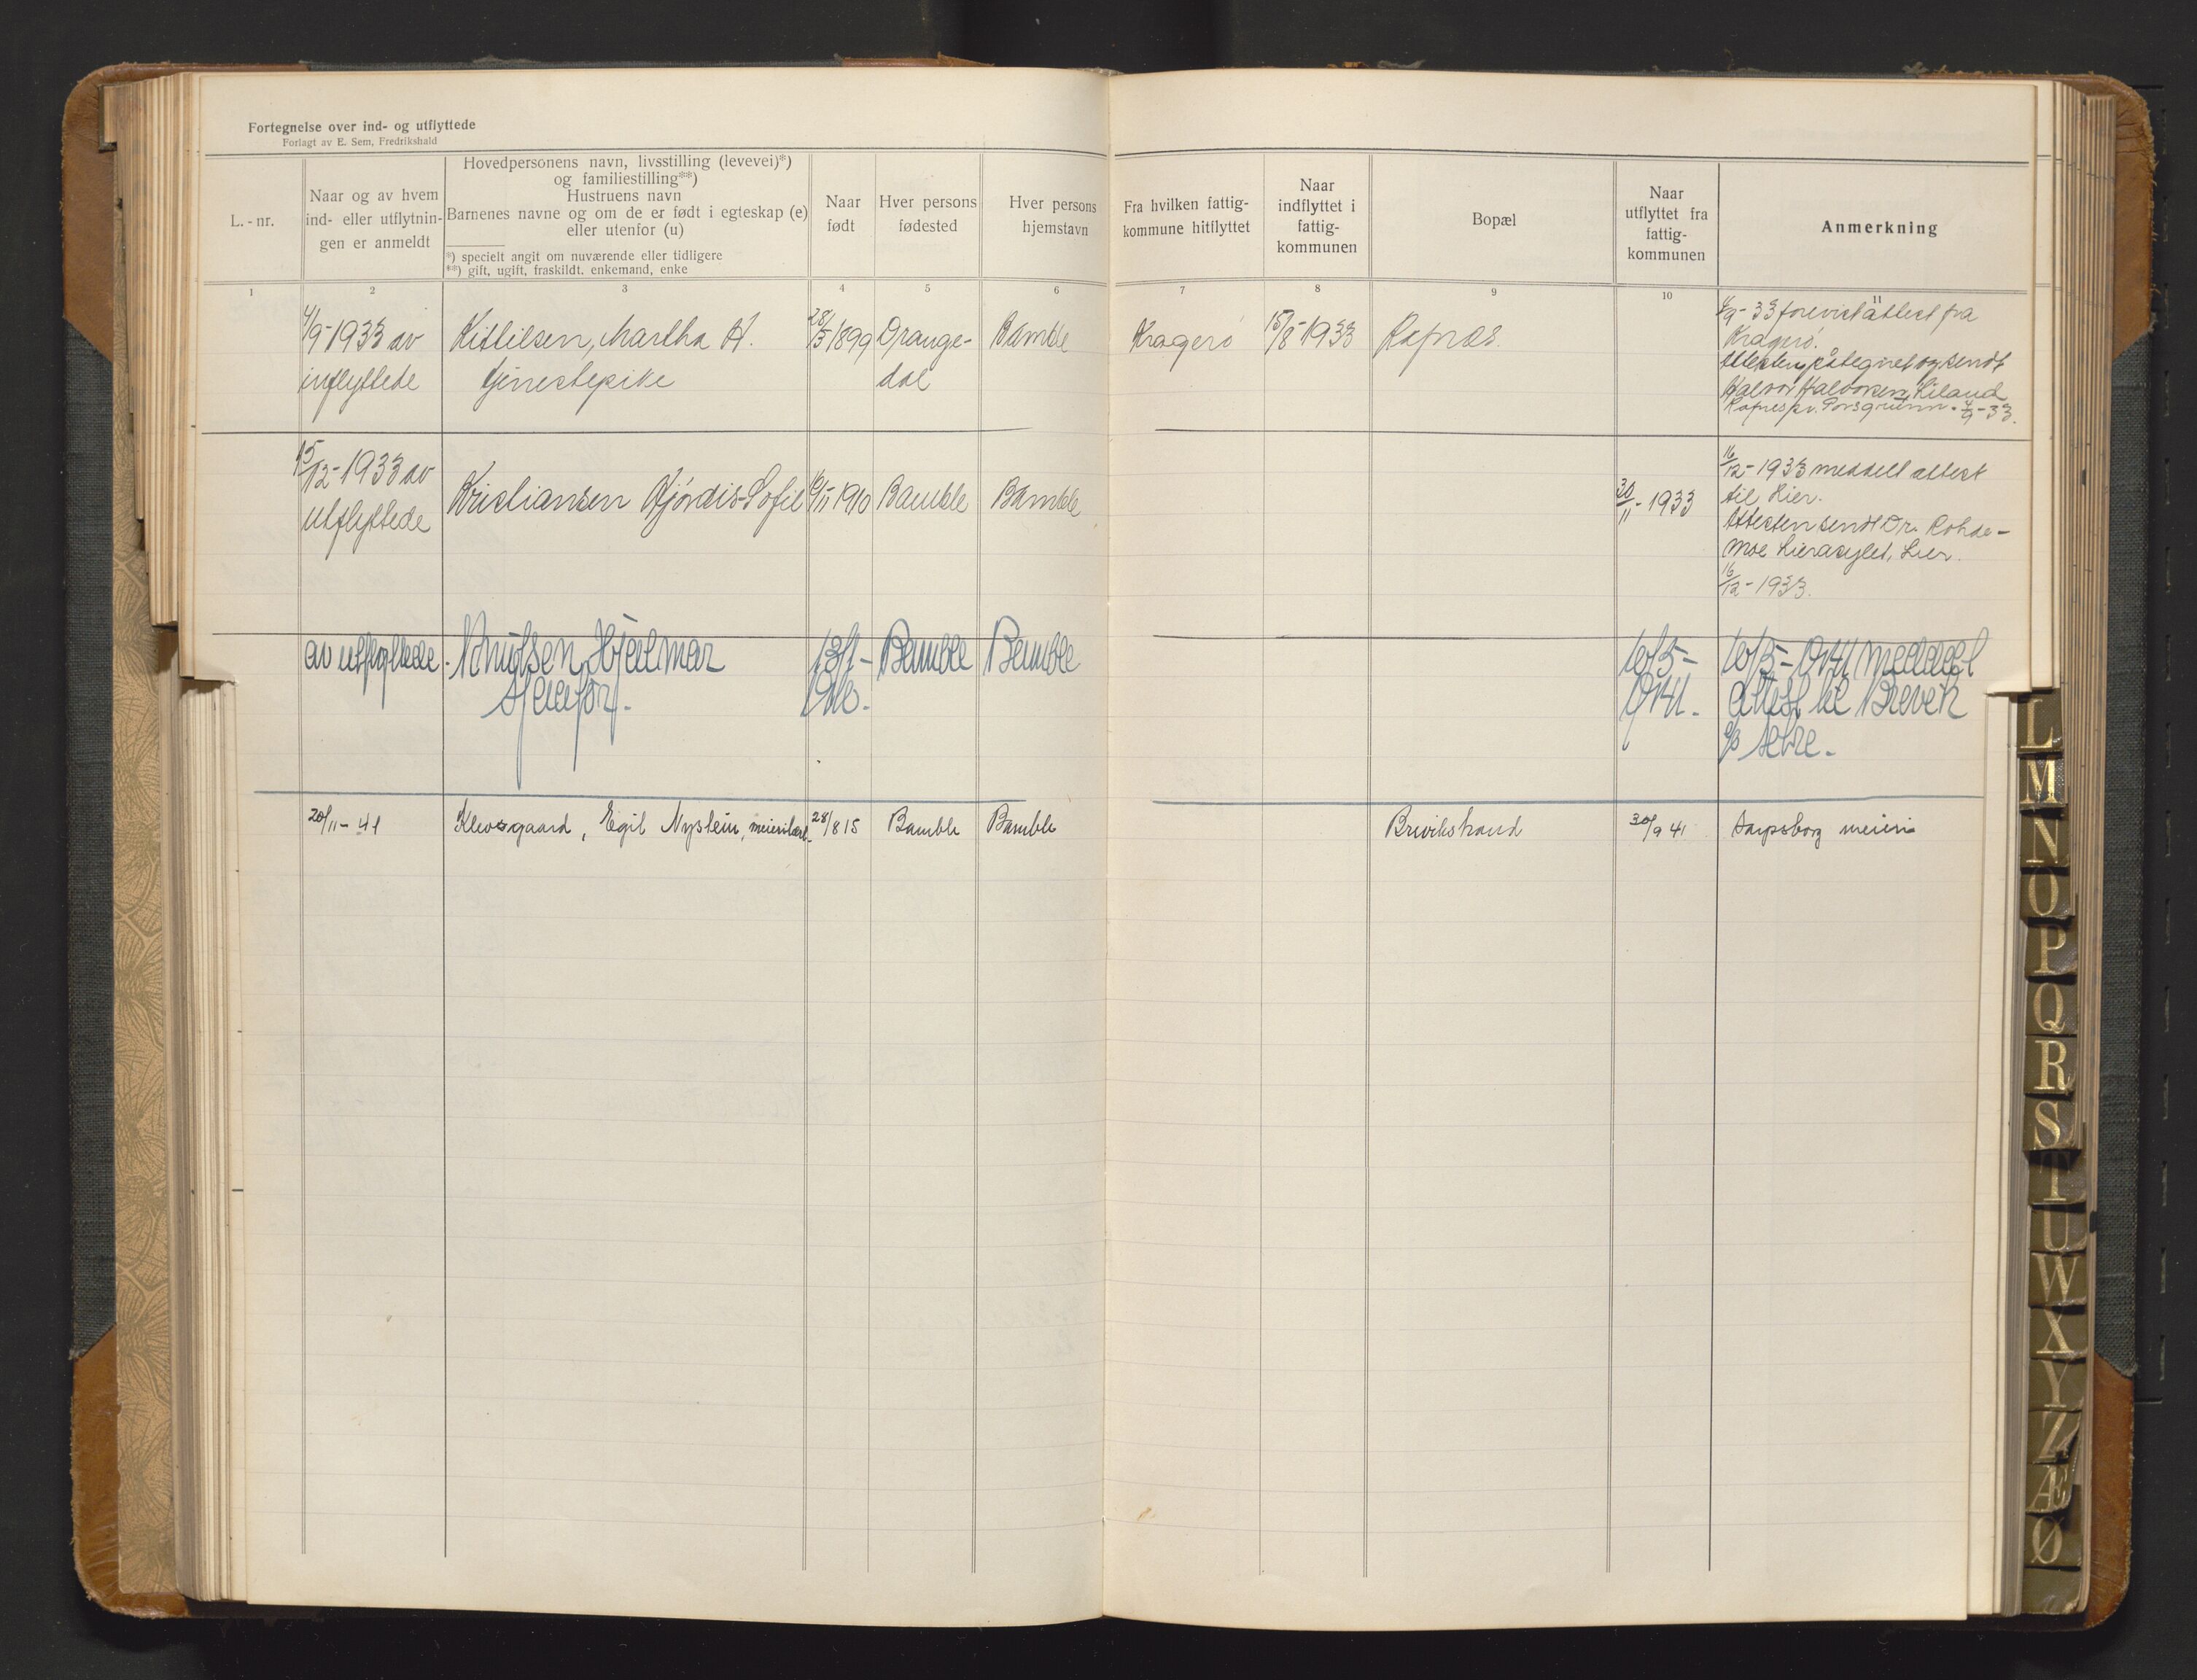 Fortegnelse over ind- og utflyttede
Forlagt av E. Sem, Fredrikshald
L. - nr.
Naar og av hvem
ind- eller utflytnin-
gen er anmeldt
Hovedpersonens navn, livsstilling (levevei)*)
og familiestilling**)
Hustruens navn
Barnenes navne og om de er født i egteskap (e)
eller utenfor (u)
*) specielt angit om nuværende eller tidligere
**) gift, ugift, fraskildt. enkemand, enke
Naar
født
Hver persons
fødested
Hver persons
hjemstavn
Fra hvilken fattig-
kommune hitflyttet
Naar
indflyttet i
fattig-
kommunen
Bopæl
Naar
utflyttet fra
fattig-
kommunen
Anmerkning
1 2 3 4 5 6 7 8 9 10 11
4/9-1933 av
inflyttede
Kittilsen, Martha H.
tjenestepike
28/3 1899
Drange-
dal
Bamble
Kragerö
15/8-1933
Rafnæs.
4/9-33 forevist attest fra
Kragerö.
Attesten påtegnet og sendt
Halvor Halvorsen,
Rafnes pr. Porsgrunn. 4/9-33.
15/12-1933 av
utflyttede
Kristiansen Hjördis Sofie
/11 1910
Bamble
Bamble
30/11-1933
16/12-1933 meddelt attest
til Lier.
Attesten sendt Dr. Rohde-
Moe Lierasylet, Lier.
16/12-1933.
av utflyttede.
Knutsen, Hjalmar
sjaufør.
13/1-
Bamble
Bamble
10/5-
1941.
10/5-1941 meddeel
attest til Brevik
20/11-41
Klevsgaard, Egil Nystein, meierilærl.
28/8 15
Bamble
Bamble
Brevikstrand
30/9 41
Sarpsborg meieri
L
M
N
O
P
Q
R
S
T
U
W
X
Y
Z
Æ
Ø